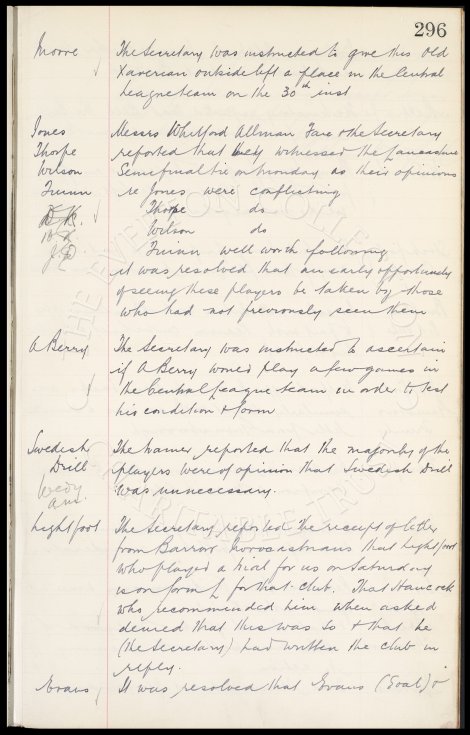 296
Moore The Secretary was instructed to give this Old
Xaverian outside left a place in the Central
League team on the 30th inst
Jones Messrs Whitford Allman Fare & the Secretary
Thorpe reported that they witnessed the Lancashire
Wilson Semifinal tie on Monday as their opinions
re Jones were conflicting
Thorpe do
Wilson do
well worth following
it was resolved that an early opportunity
of seeing these players be taken by those
who had not previously seen them
A Berry The Secretary was instructed to ascertain
if A Berry would play a few games in
the Central League team in order to test
his condition & form
Swedish The trainer reported that the majority of the
Drill players were of opinion that Swedish Drill
was unnecessary.
Lightfoot The Secretary reported the receipt of letter
from Barrow Novocastrians that Lightfoot
who played a trial for us on Saturday
is on form L for that club. That Hancock
who recommended him when asked
denied that this was so & that he
(the Secretary) had written the club in
reply.
Evans It was resolved that Evans (Goal) o
THE EVERTON COLLECTION
CHARITABLE TRUST